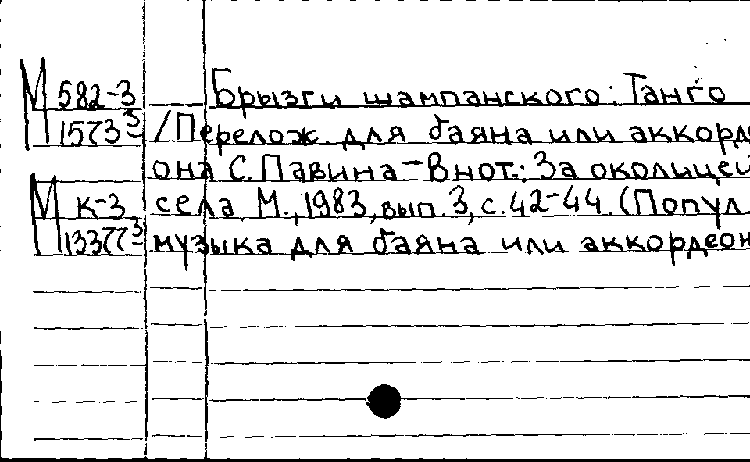 М 582-3 Брызги шампанского: Танго
1573³ /Перелож. для баяна или аккорде
она С. Павина – В нот.: За околицей
М К-3 села. М., 1983, вып. 3, с. 42-44. (Попул.
13377³ музыка для баяна или аккордеон